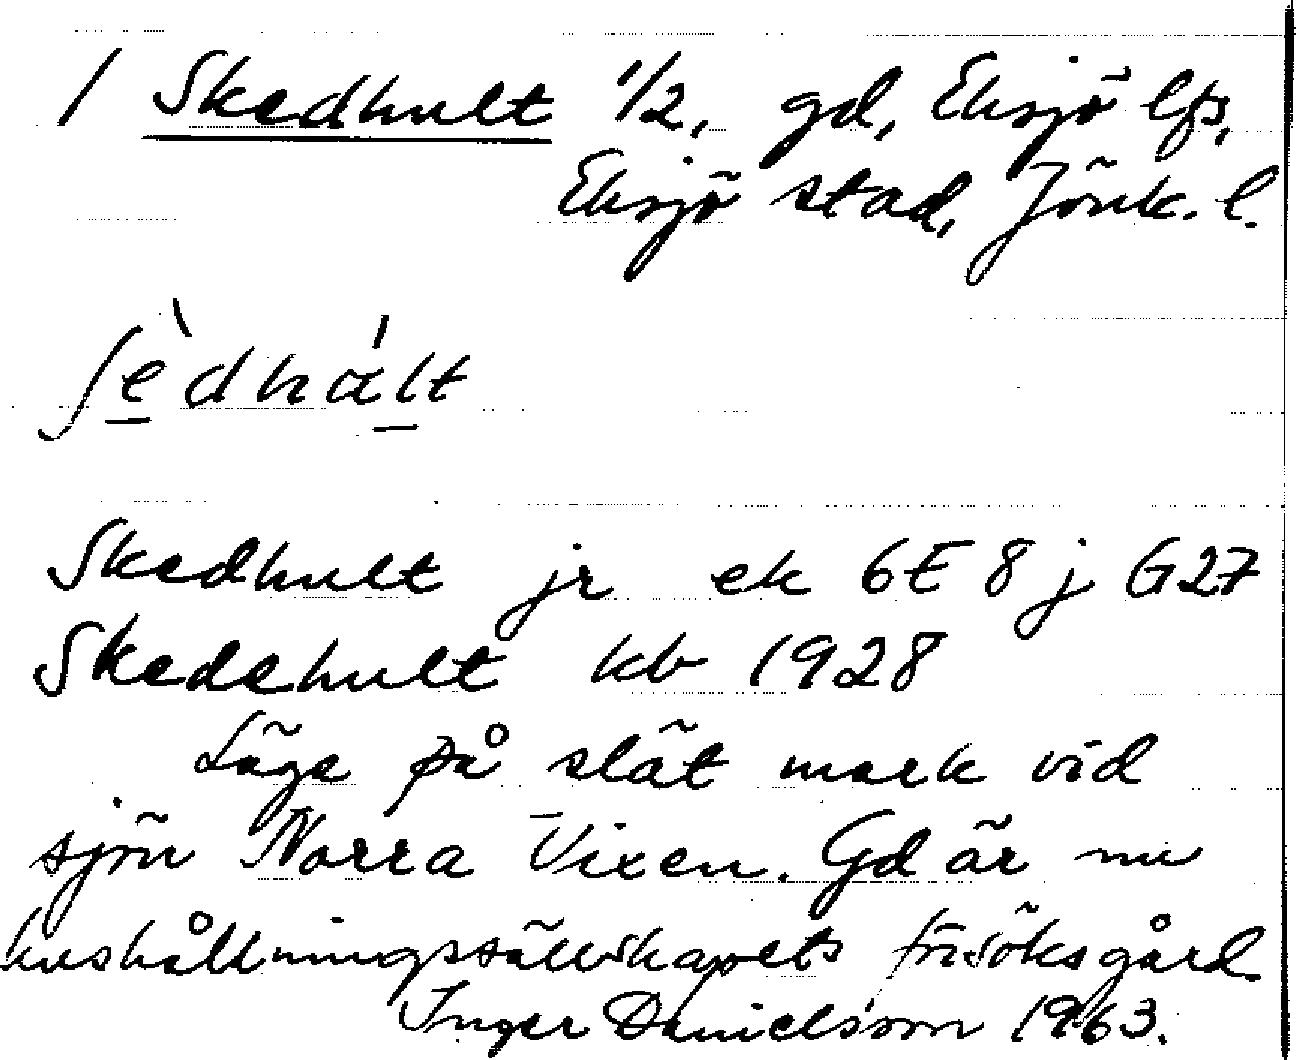 / Skedhult 1/2, gd, Eksjö lfs,
Eksjö stad, Jönk. l.
ʃèdhált
Skedhult jr ek 6E 8 j G27
Skedehult kb 1928
Läge på slät mark vid
sjön Norra Vixen. Gd är nu
hushållningssällskapets försöksgård
Inger Danielsson 1963.